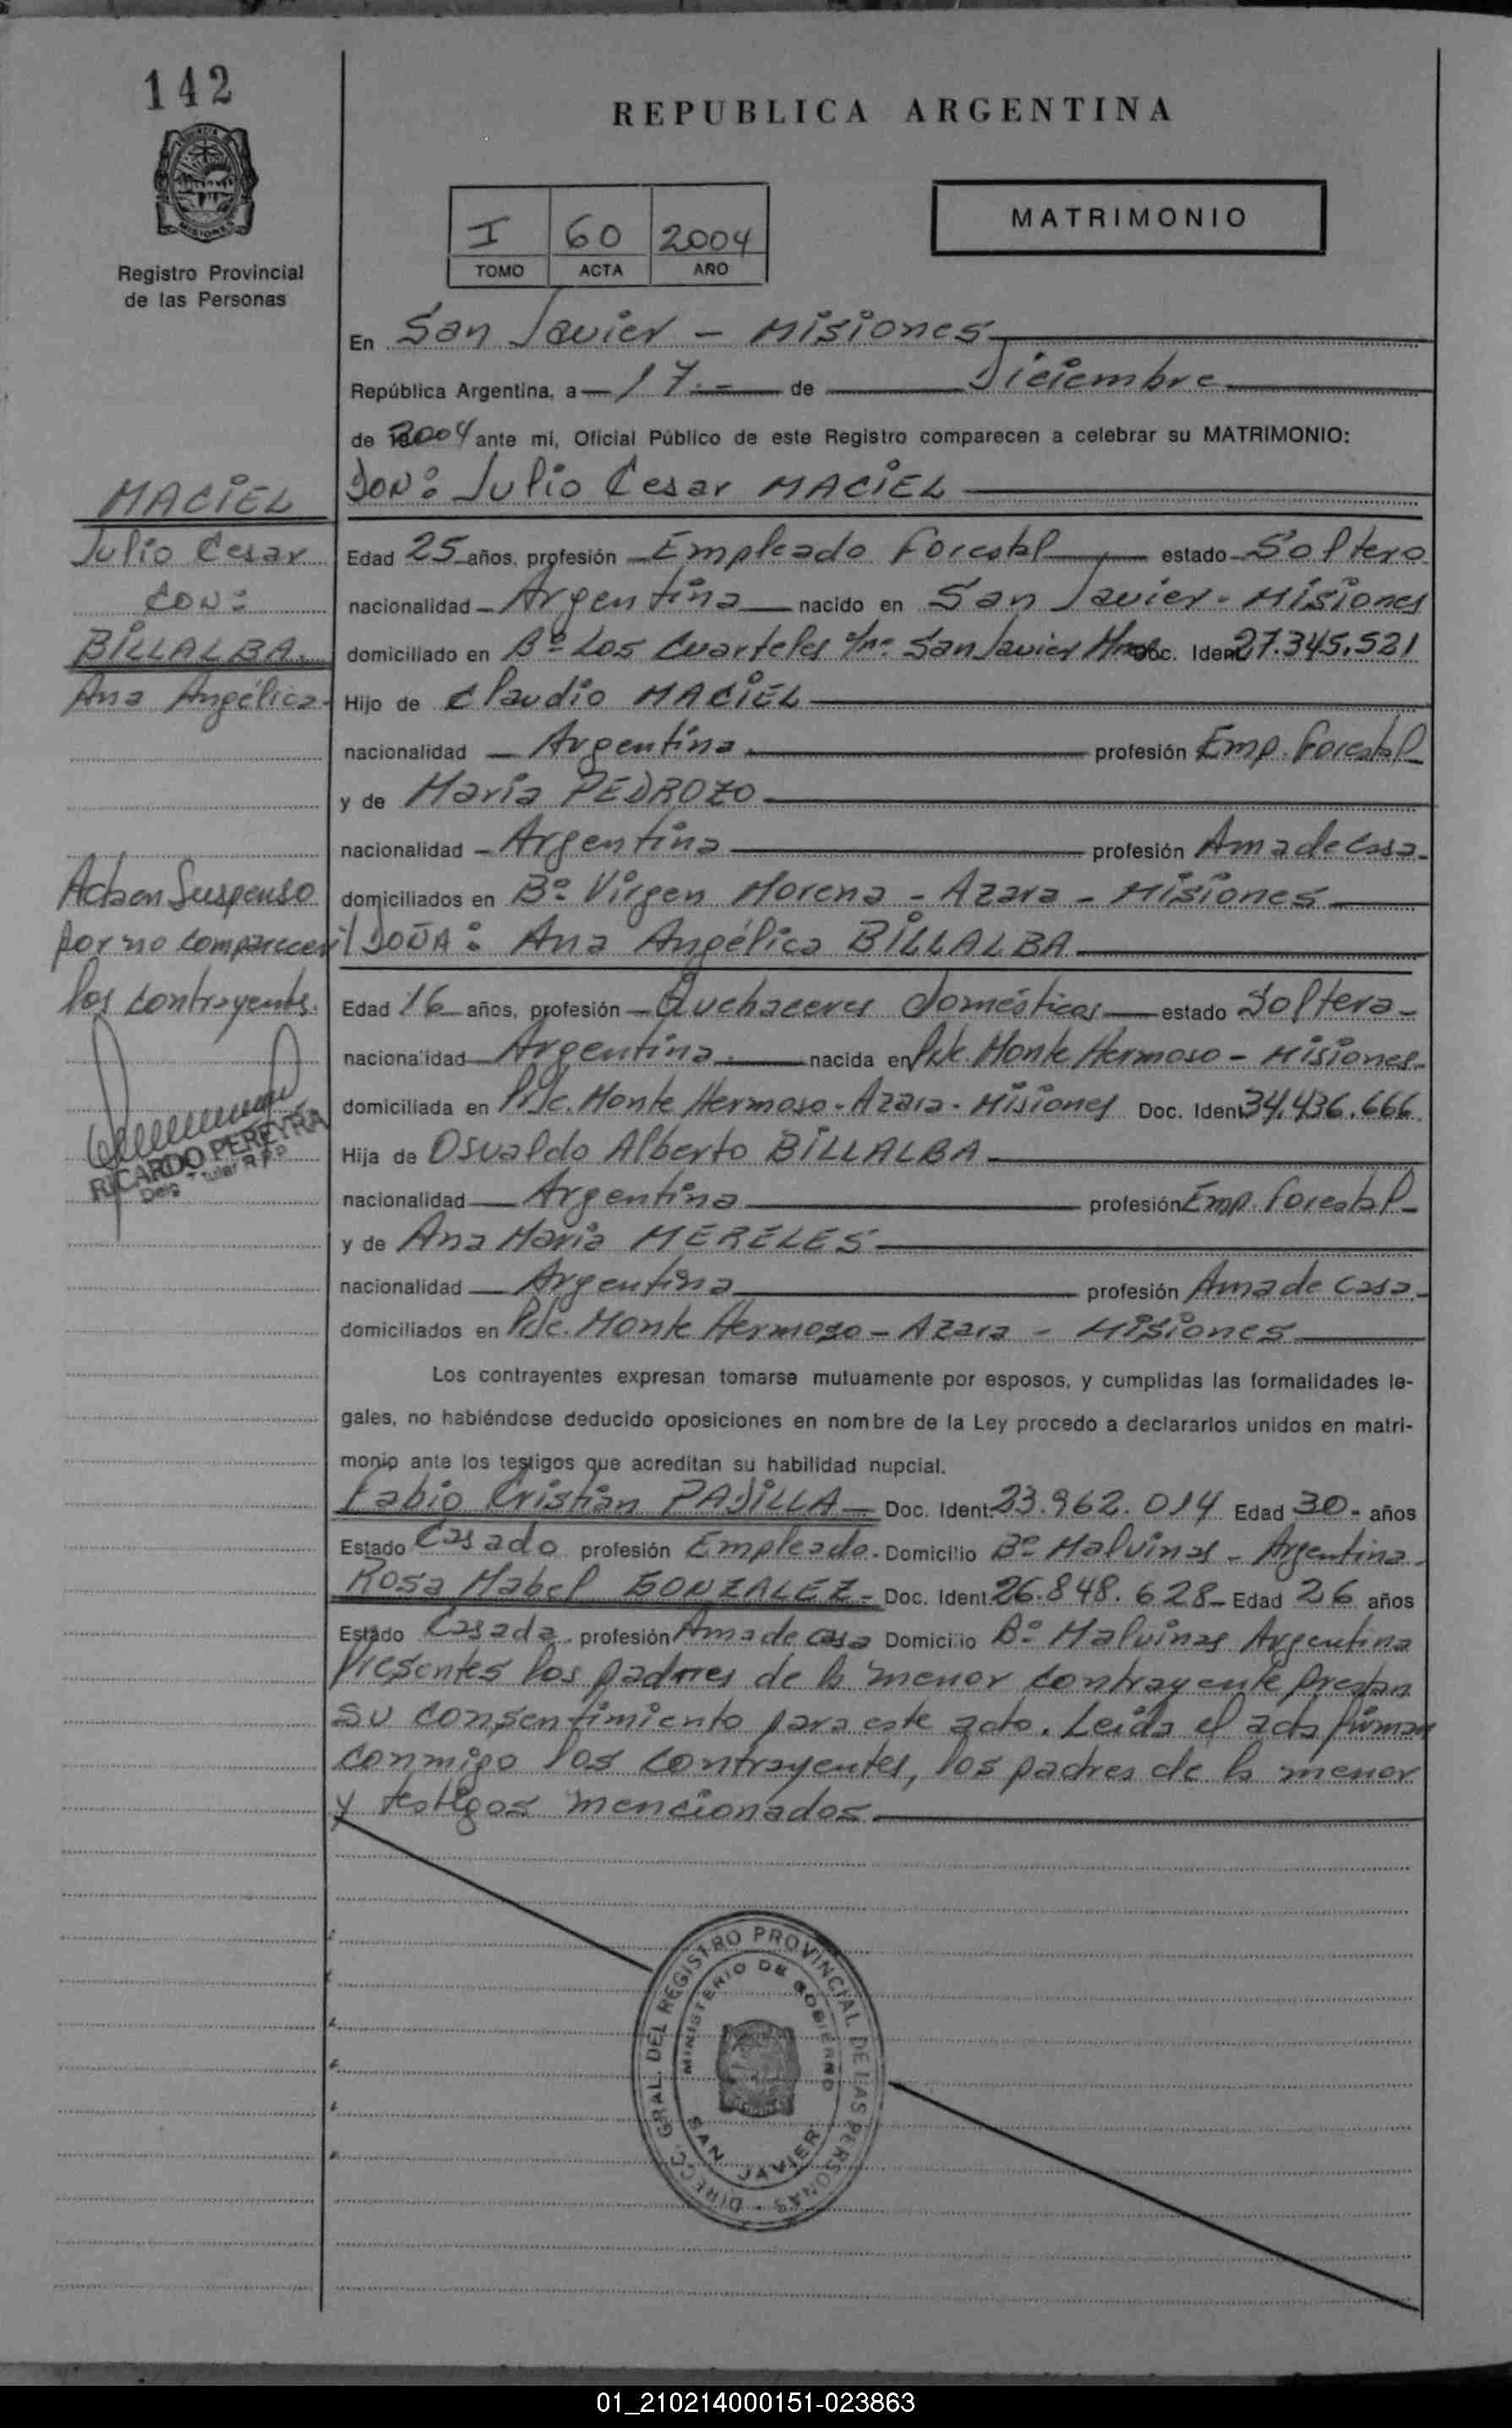 142
REPUBLICA ARGENTINA
MISIONES
Registro Provincial
de las Personas
I 60 2004
TOMO ACTA AÑO
MATRIMONIO
En San Javier - Misiones
República Argentina, a 17.- de Diciembre
de 2004 ante mí, Oficial Público de este Registro comparecen a celebrar su MATRIMONIO:
DON: Julio Cesar MACIEL
Edad 25 años, profesión Empleado Forestal estado Soltero
nacionalidad Argentina nacido en San Javier - Misiones
domiciliado en Bº Los Cuarteles San Javier Doc. Ident 27.345.521
Hijo de Claudio MACIEL
nacionalidad Argentina profesión Emp. Forestal
y de María PEDROZO
nacionalidad Argentina profesión Ama de Casa
domiciliados en Bº Virgen Morena - Azara - Misiones
DOÑA: Ana Angélica BILLALBA
Edad 16 años, profesión Quehaceres domésticos estado Soltera
nacionalidad Argentina nacida en Monte Hermoso - Misiones
domiciliada en Monte Hermoso - Azara - Misiones Doc. Ident 34.436.666
Hija de Osvaldo Alberto BILLALBA
nacionalidad Argentina profesión Emp. Forestal
y de Ana Maria MERELES
nacionalidad Argentina profesión Ama de Casa
domiciliados en Monte Hermoso - Azara - Misiones
Los contrayentes expresan tomarse mutuamente por esposos, y cumplidas las formalidades le-
gales, no habiéndose deducido oposiciones en nombre de la Ley procedo a declararlos unidos en matri-
monio ante los testigos que acreditan su habilidad nupcial.
Fabio Cristian PADILLA Doc. Ident. 23.962.014 Edad 30 años
Estado Casado profesión Empleado. Domicilio Bº Malvinas - Argentina
Rosa Mabel GONZALEZ Doc. Ident 26.848.628 Edad 26 años
Estado Casada profesión Ama de casa Domicilio Bº Malvinas Argentina
Presentes los padres de la menor contrayente prestan
su consentimiento para este acto. Leída el acta firman
conmigo los contrayentes, los padres de la menor
y testigos mencionados
MACIEL
Julio Cesar
CON:
BILLALBA
Ana Angélica
Acta en Suspenso
por no comparecer
los contrayentes.
RICARDO PEREYRA
DIRECC. GRAL. DEL REGISTRO PROVINCIAL DE LAS PERSONAS
MINISTERIO DE GOBIERNO
SAN JAVIER
01_210214000151-023863